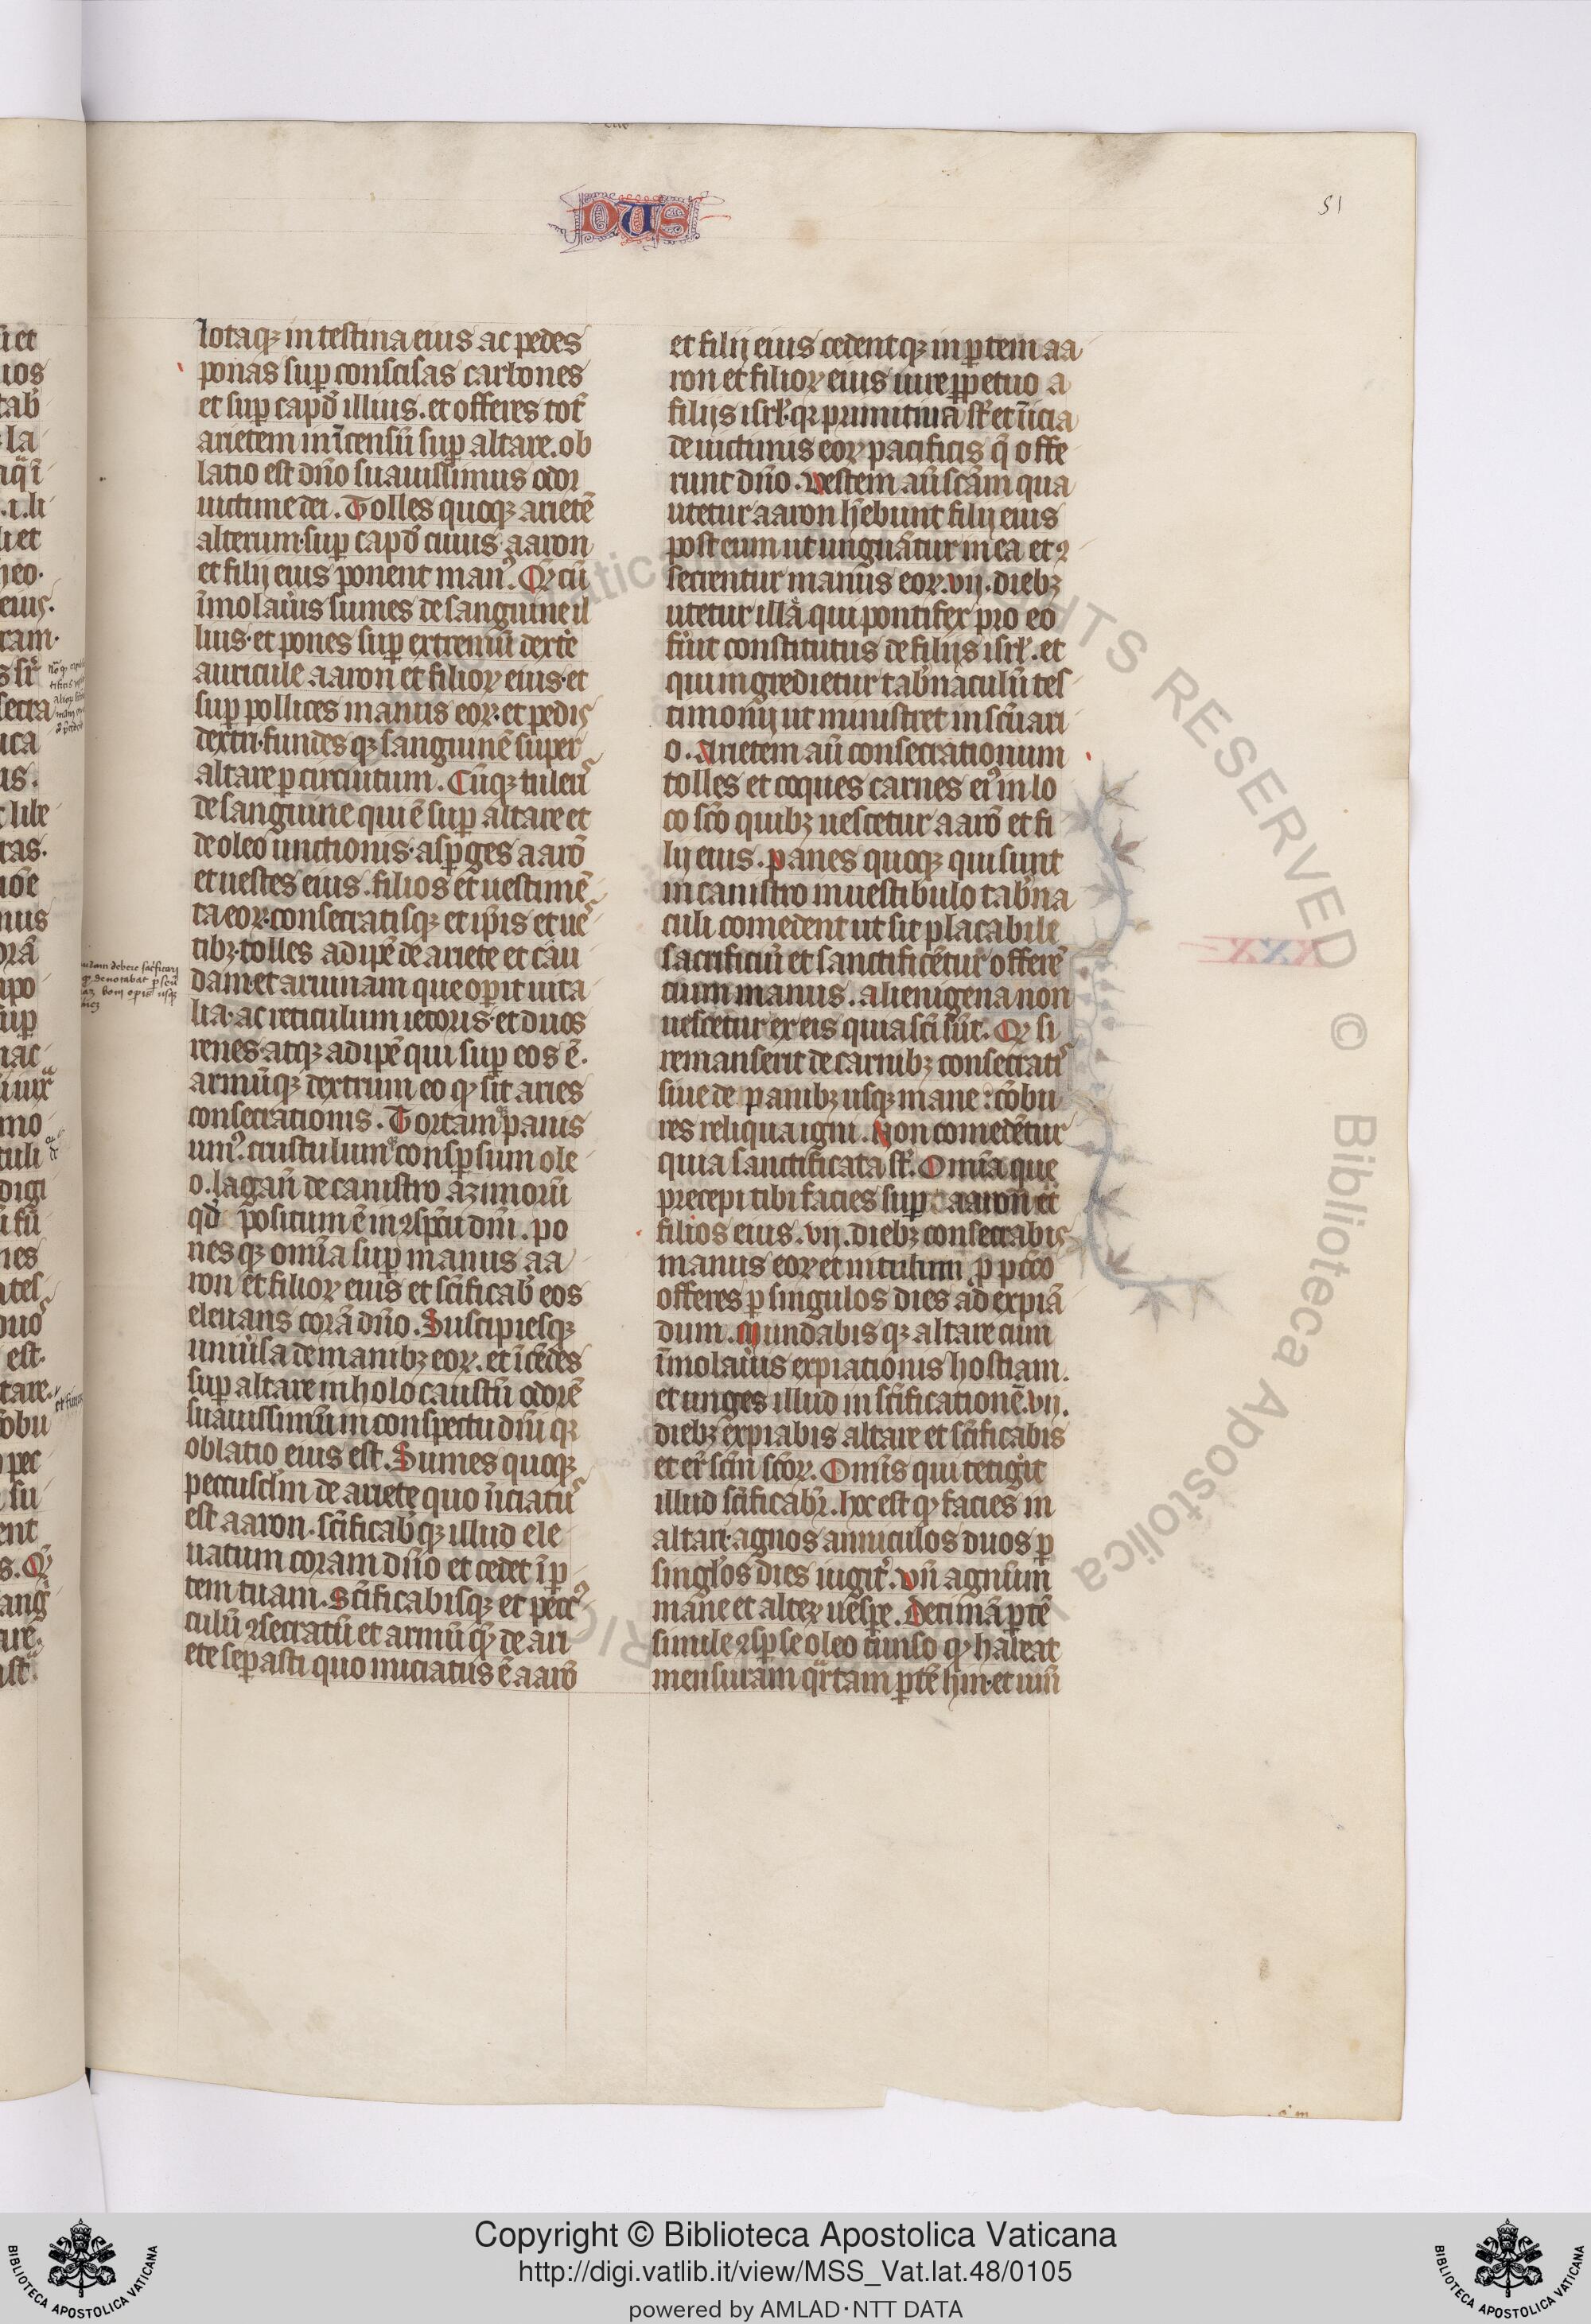 DUS
51
lotaqz in testina eius ac pedes
ponas sup conscisas carbones
et sup capd illius. et offeres tot̄
arietem in īcensū sup altare. ob
latio est dn̄o suauissimus odor
uictime dei. Tolles quoqz arietē
alterum. sup capd cuius aaron
et filij eius ponent man⁹. Qꝫ cū
īmolauis sumes de sanguine il
lius. et pones sup extremū dextẹ
auricule aaron et filioꝝ eius. et
sup pollices manus eoꝝ. et pedis
dextri. fundesqz sanguinē super
altare ꝑ circuitum. Cūqz tuleris
de sanguine qui ē sup altare et
de oleo unctionis. aspges aarō
et uestes eius. filios et uestimē
ta eoꝝ. consecratisqz et ip̄is et ues
tibꝫ. tolles adipē de ariete et cau
dam. et aruinam que operit uita
lia. ac reticulum iecoris. et duos
renes. atqz adipē qui sup eos ē.
armūqz dextrum eo qꝫ sit aries
consecrationis. Tortam panis
um⁹. crustulum conspsum ole
o. laganū de canistro azimorū
qd̄ positum ē in ꝯspcū dn̄i. po
nesqz omīa sup manus aa
ron et filioꝝ eius et sc̄ificab̄ eos
eleuans corā dn̄o. Suscipiesqz
uniuīsa de manibz eoꝝ. et īcēdes
sup altare in holocaustū odorē
suauissimum in conspectu dn̄i qꝛ
oblatio eius est. Sumes quoqz
pectusclm̄ de ariete quo īiciatus
est aaron. sc̄ificab̄qz illud ele
uatum coram dn̄o et cedet ī ꝑ
tem tuam. Sc̄ificabisqz et pect⁹
culū ꝯsecratū et armū qꝫ de ari
ete sepasti quo iniciatus ē aarō
et filij eius cedentqz in ꝑtem aa
ron et filioꝝ eius iure ꝑpetuo a
filijs isrl̄. qꝛ primitiua st̄ et īicia
de uictimis eoꝝ pacificis q̄ offe
runt dn̄o. Vestem aū sc̄am qua
utetur aaron hēbunt filij eius
post eum ut unguāntur in ea et ꝯ
secrentur manus eoꝝ. vij. diebꝫ
utetur illa qui pontifex pro eo
fūit constitutus de filijs isrl̄. et
qui ingredietur tab̄naculū tes
timonij ut ministret in scūari
o. Arietem aū consecrationum
tolles et coques carnes ei⁹ in lo
co sc̄o quibꝫ uescetur aarō et fi
lij eius. Panes quoqz qui sunt
in canistro in uestibulo tab̄na
culi comedent ut sit placabile
sacrificiū et sanctificētur offerē
cium manus. alienigena non
uescetur ex eis quia sc̄i sūt. Qꝫ si
remanserit de carnibꝫ consecratis
siue de panibꝫ usqz mane: cōbu
res reliqua igni. Non comedētur
quia sanctificata st̄. Omīa que
precepi tibi facies sup aaron et
filios eius. vij. diebꝫ consecrabis
manus eoꝝ et uitulum ꝓ pcc̄o
offeres ꝑ singulos dies ad expiā
dum. Mundabisqz altare cum
īmolauis expiationis hostiam.
et unges illud in sc̄ificationē. vij.
diebꝫ expiabis altare et sc̄ificabis
et er̄ scm̄ sc̄oꝝ. Omīs qui tetigit
illud sc̄ificabr̄. hoc est qꝫ facies in
altari. agnos anniculos duos ꝑ
singlos dies iugit̄. Vn̄ agnum
mane et alteꝝ uespe. Decimā ꝑtē
simile ꝯspse oleo tunso qꝫ habeat
mensuram qr̄tam ꝑtē hin. et uinū
XXX
Copyright © Biblioteca Apostolica Vaticana
http://digi.vatlib.it/view/MSS_Vat.lat.48/0105
powered by AMLAD·NTT DATA
BIBLIOTECA APOSTOLICA VATICANA
BIBLIOTECA APOSTOLICA VATICANA